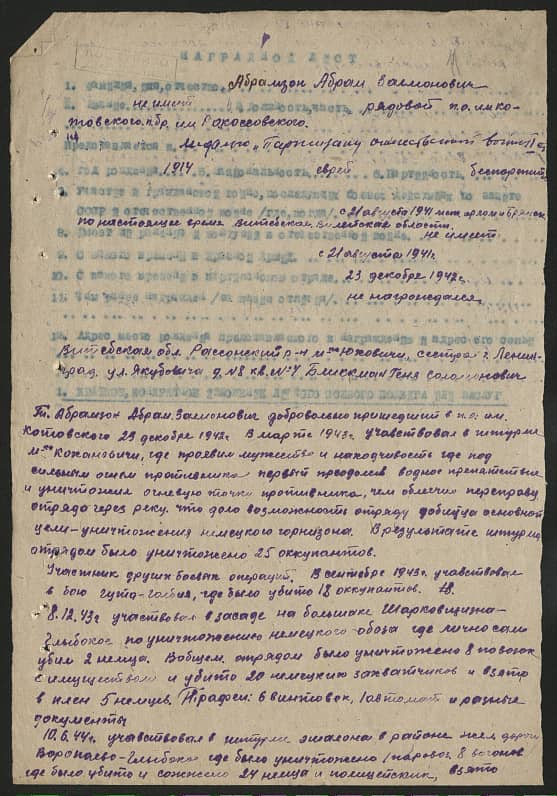 НАГРАДНОЙ ЛИСТ
1. Фамилия, имя, отчество. Абрамзон Абрам Залмонович
2. Звание не имеет 3. должность, часть рядовой п.о. им. Ко-
товского п/бр. им Рокоссовского.
Представляется к Медалью "Партизану отечественной войны" II ст
4. Год рождения 1914 5. Национальность еврей 6. Партийность беспартий
7. Участие в гражданской войне, последующих боевых действиях по защите
СССР и отечественной войне /где, когда/. с 21 августа 1941
по настоящее время Витебская Вилейская области.
8. Имеет ли ранения и контузии в отечественной войне. не имеет
9. С какого времени в Красной Армии. с 21 августа 1941г.
10. С какого времени в партизанском отряде. 23 декабря 1942г.
11. Чем ранее награжден /за какие отличия/. не награждался
12. Адрес место рождения представляемого к награждению и адрес его семьи
Витебская обл. Россонский р-н м-ко Юховичи, сестра г. Ленин-
град ул. Якубовича д. N8 кв. N4 Бликман Геня
1. КРАТКОЕ, КОНКРЕТНОЕ ИЗЛОЖЕНИЕ ЛИЧНОГО БОЕВОГО ПОДВИГА ИЛИ ЗАСЛУГ
Т. Абрамзон Абрам Залмонович добровольно пришедший в п.о. им.
Котовского 23 декабря 1942г. В марте 1943г. учавствовал в штурме
м-ко Кохановичи, где проявил мужество и находчивость где под
сильным огнем противника первый преодолев водное препятствие
и уничтожил огневую точку противника, чем облегчил переправу
отряда через реку. что дало возможность отряду добится основной
цели-уничтожения немецкого горнизона. В результате штурма
отрядом было уничтожено 25 оккупантов.
Участник других боевых операций. В сентябре 1943г. учавствовал
в бою гута-, где было убито 18 оккупантов.
8.12.43г участвовал в засаде на большаке Шарковщизна-
Глыбокое по уничтожению немецкого обоза где лично сам
убил 2 немца. Вобщем отрядом было уничтожено 8 повозок
с имуществом и убито 20 немецких захватчиков и взято
в плен 5 немцев. Трафеи: 6 винтовок, 1 автомат и разные
документы
10.6.44г. учавствовал в штурме эшалона в районе жел дороги
Воропаево-Глыбокое где было уничтожено 1 паровоз 8 вагонов
где было убито и сожжено 24 немца и полицейских, взято